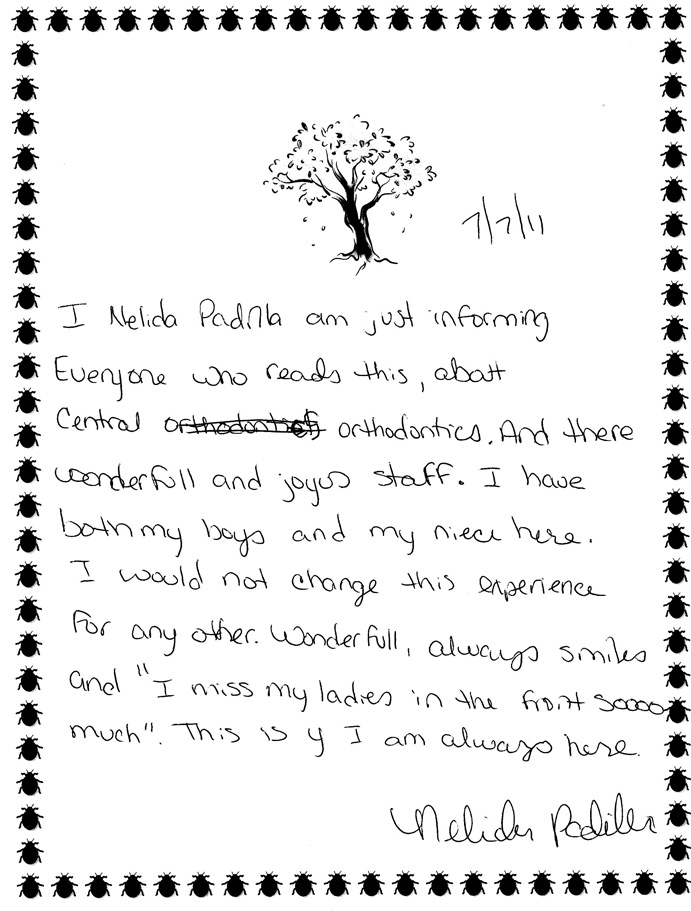 7/7/11
I Nelida Padilla am just informing
Everyone who reads this, abott
Central orthodontics orthodontics. And there
wonderfull and joyus staff. I have
both my boys and my niece here.
I would not change this experience
for any other. Wonderfull, always smiles
and "I miss my ladies in the front soooo
much". This is y I am always here.
Nelida Padilla